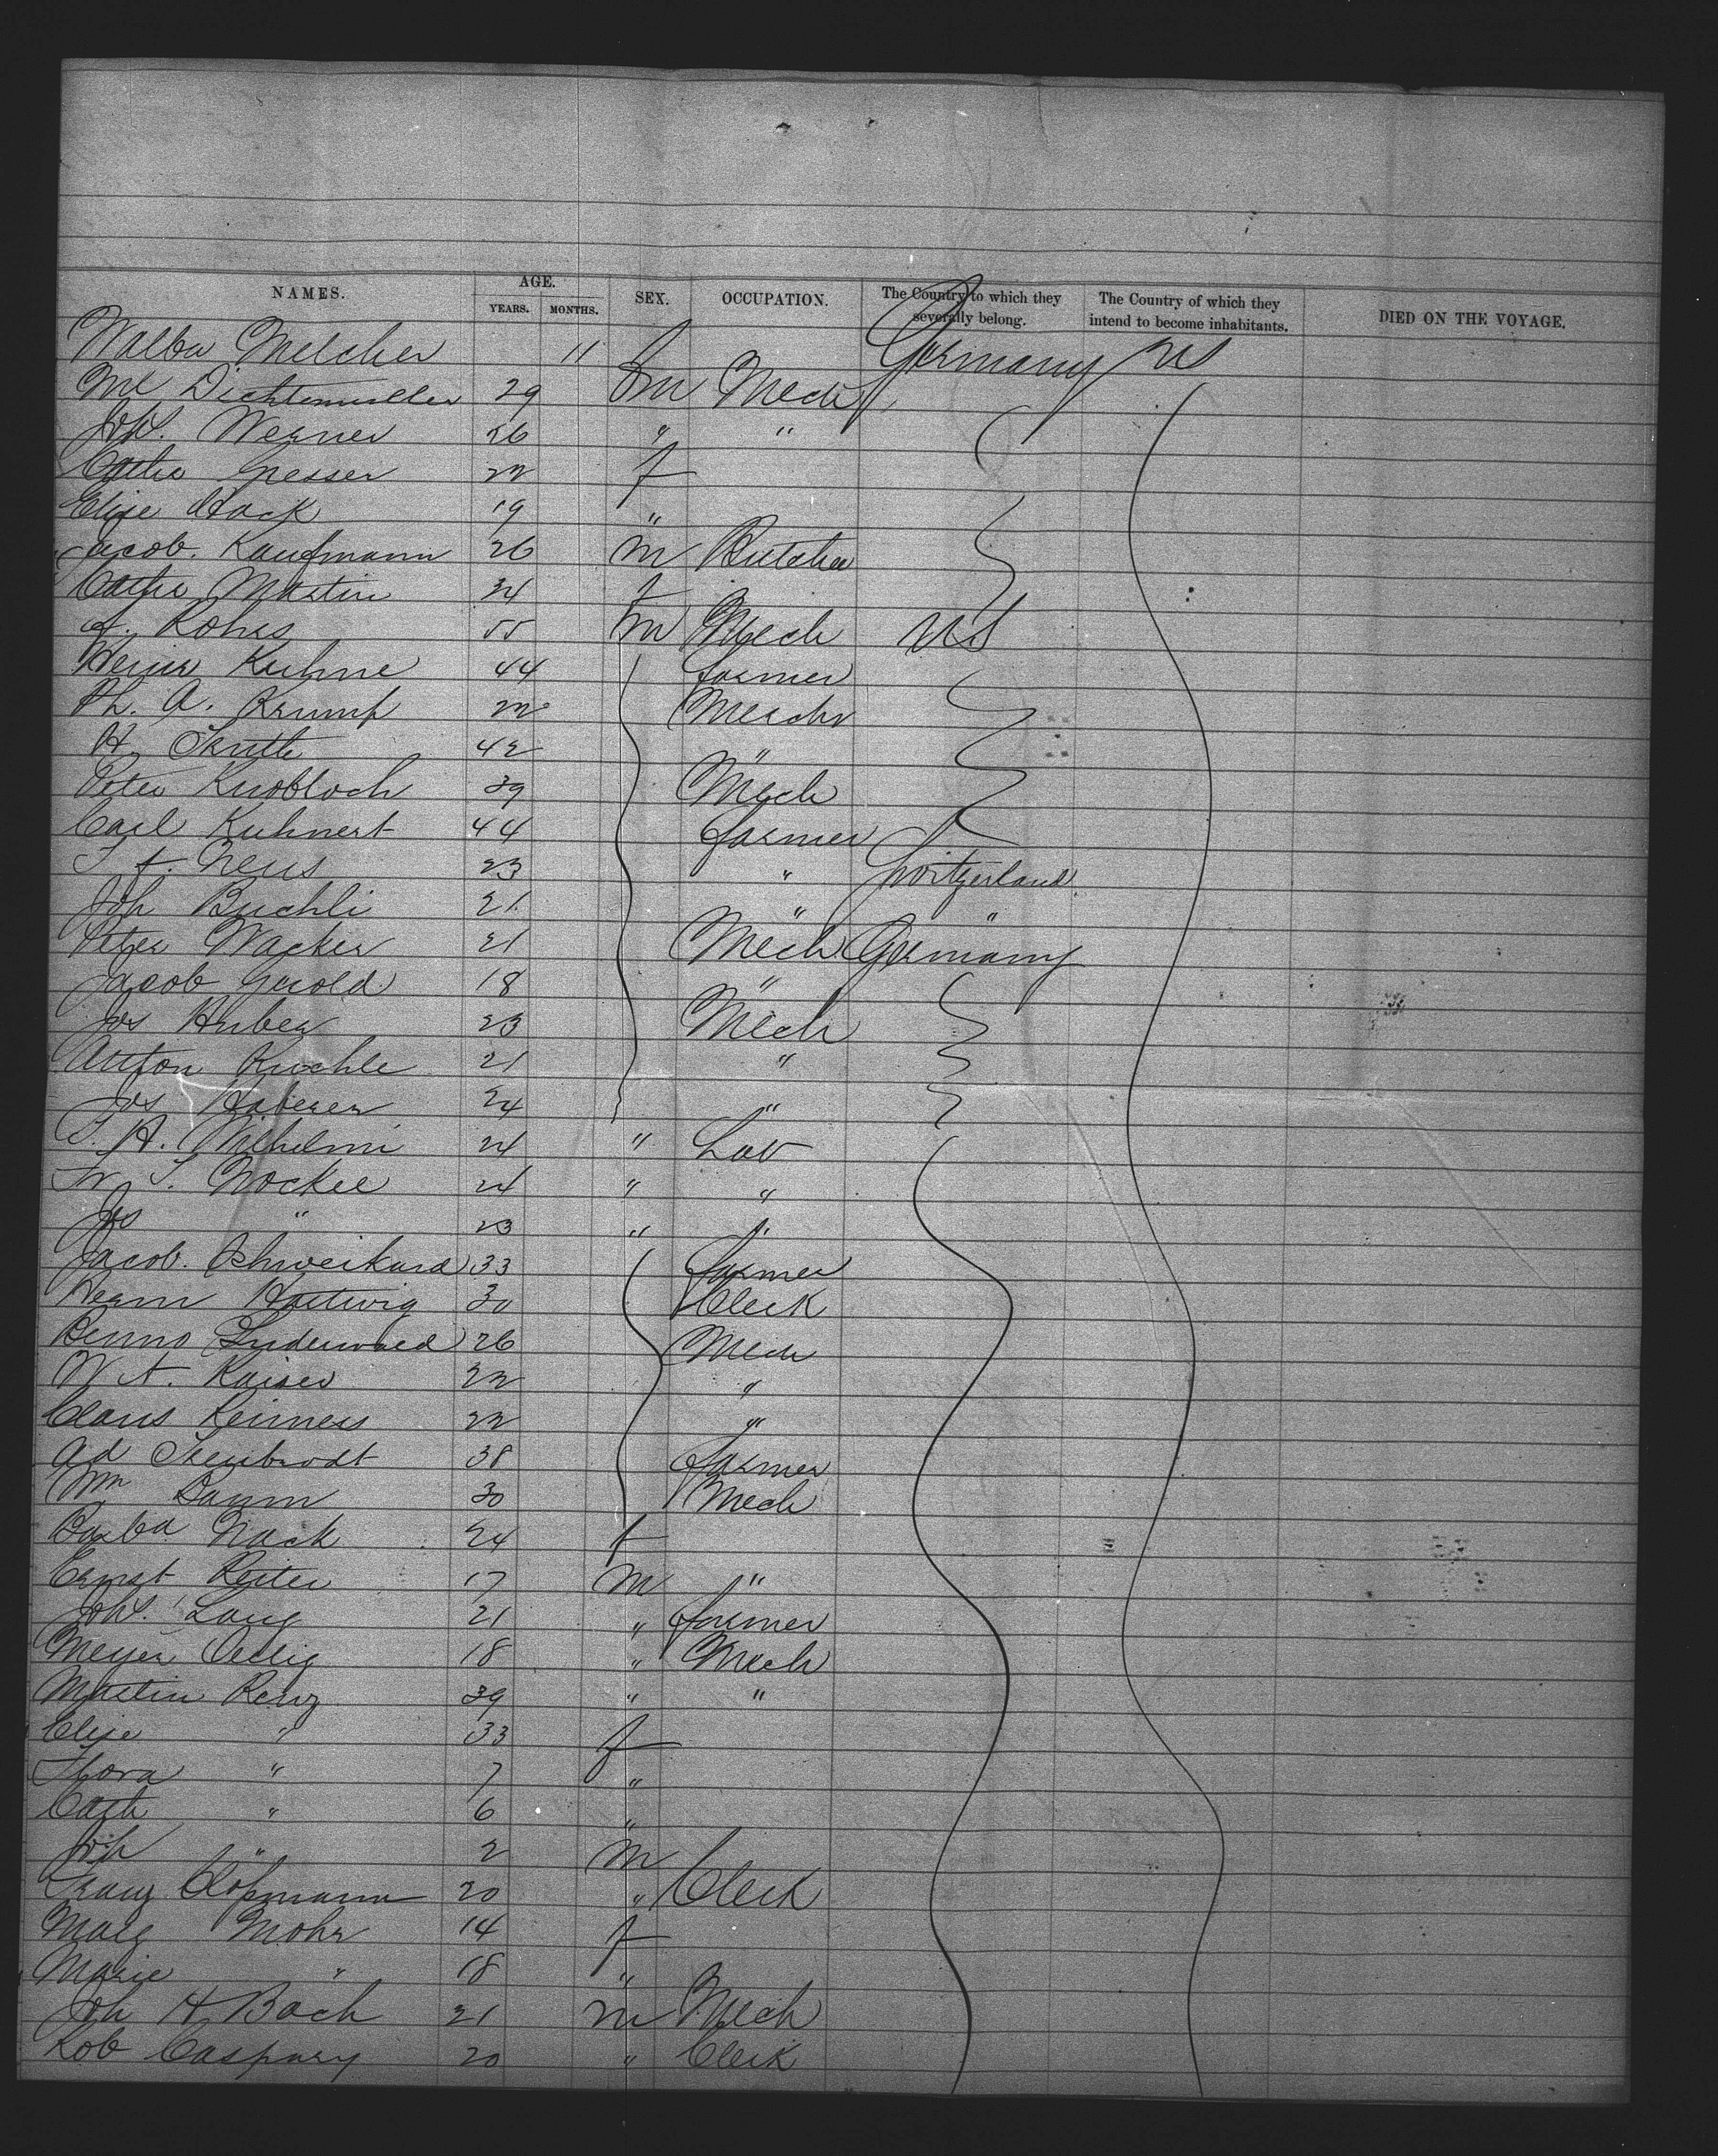 NAMES. AGE. YEARS. MONTHS. SEX. OCCUPATION. The Country to which they severally belong. The Country of which they intend to become inhabitants. DIED ON THE VOYAGE.
Walba Melcher 11 f Germany US
Ml Dichtemuller 29 m Mech
Joh. Werner 26 " "
Cathe Gresser 22 f
Elise Hack 19 "
Jacob. Kaufmann 26 m Butcher
Cathe Martin 34 f
f. Rohrs 55 m Mech US
Heinr Kuhne 44 farmer
Ph. A. Krump 22 Mercht
H. 42 "
Peter Knobloch 39 Mech
Carl Kuhnert 44 farmer
23 " Switzerland
Joh Buchli 21 " "
Peter Wacker 21 Mech Germany
Jacob Gerold 18 "
Jos Huber 23 Mech
Anton Kuchle 21 "
Jos Haberer 24 "
Wilhelmi 24 " Lab
Nockel 24 " "
Jos " 23 " "
Jacob. Schweikard 33 farmer
Herm Hartwig 30 Clerk
Benno 26 Mech
Kaiser 22 "
Claus Reiners 22 "
Ad 38 farmer
Wm Baum 30 Mech
Barba Nack 24 f
Ernst Reiter 17 m "
Joh. Lang 21 " farmer
Meyer Oettig 18 " Mech
Martin Renz 39 " "
Elise " 33 f
Flora " 7 "
Cath " 6 "
Joh " 2 m
Franz 20 " Clerk
Marg Mohr 14 f
Marie " 18 "
Joh H Bach 21 m Mech
Rob Caspary 20 " Clerk